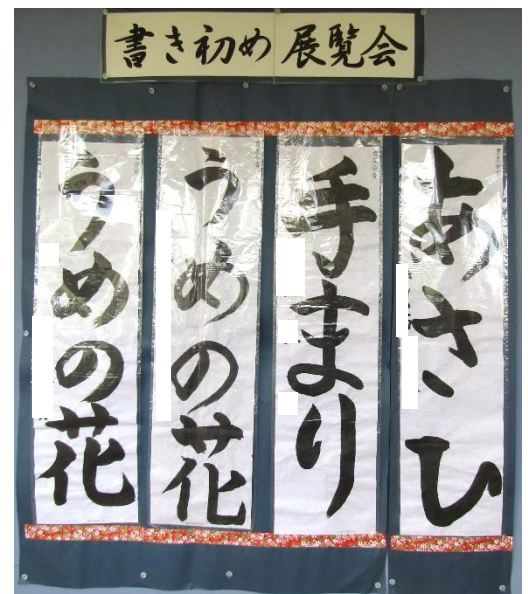 書き初め 展覧会
あさひ
手まり
うめの花
うめの花